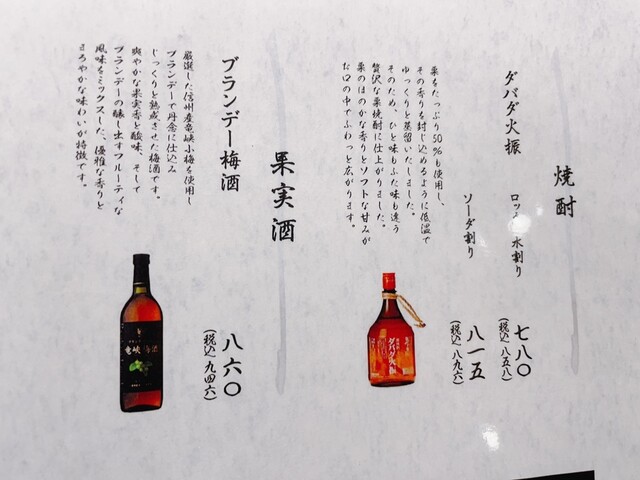 焼酎
ダバダ火振
ロック 水割り
七八〇
(税込 八五八)
ソーダ割り
八一五
(税込 八九六)
栗をたっぷり50%も使用し、
その香りを封じ込めるように低温で
ゆっくりと蒸留いたしました。
そのため、ひと味もふた味も違う
贅沢な栗焼酎に仕上がりました。
栗のほのかな香りとソフトな甘みが
お口の中でふわっと広がります。
ダバダ火振
果実酒
ブランデー梅酒
八六〇
(税込 九四六)
厳選した信州産竜峡小梅を使用し
ブランデーで丹念に仕込み
じっくりと熟成させた梅酒です。
爽やかな果実香と酸味、そして
ブランデーの醸し出すフルーティな
風味をミックスした、優雅な香りと
まろやかな味わいが特徴です。
竜峡梅酒